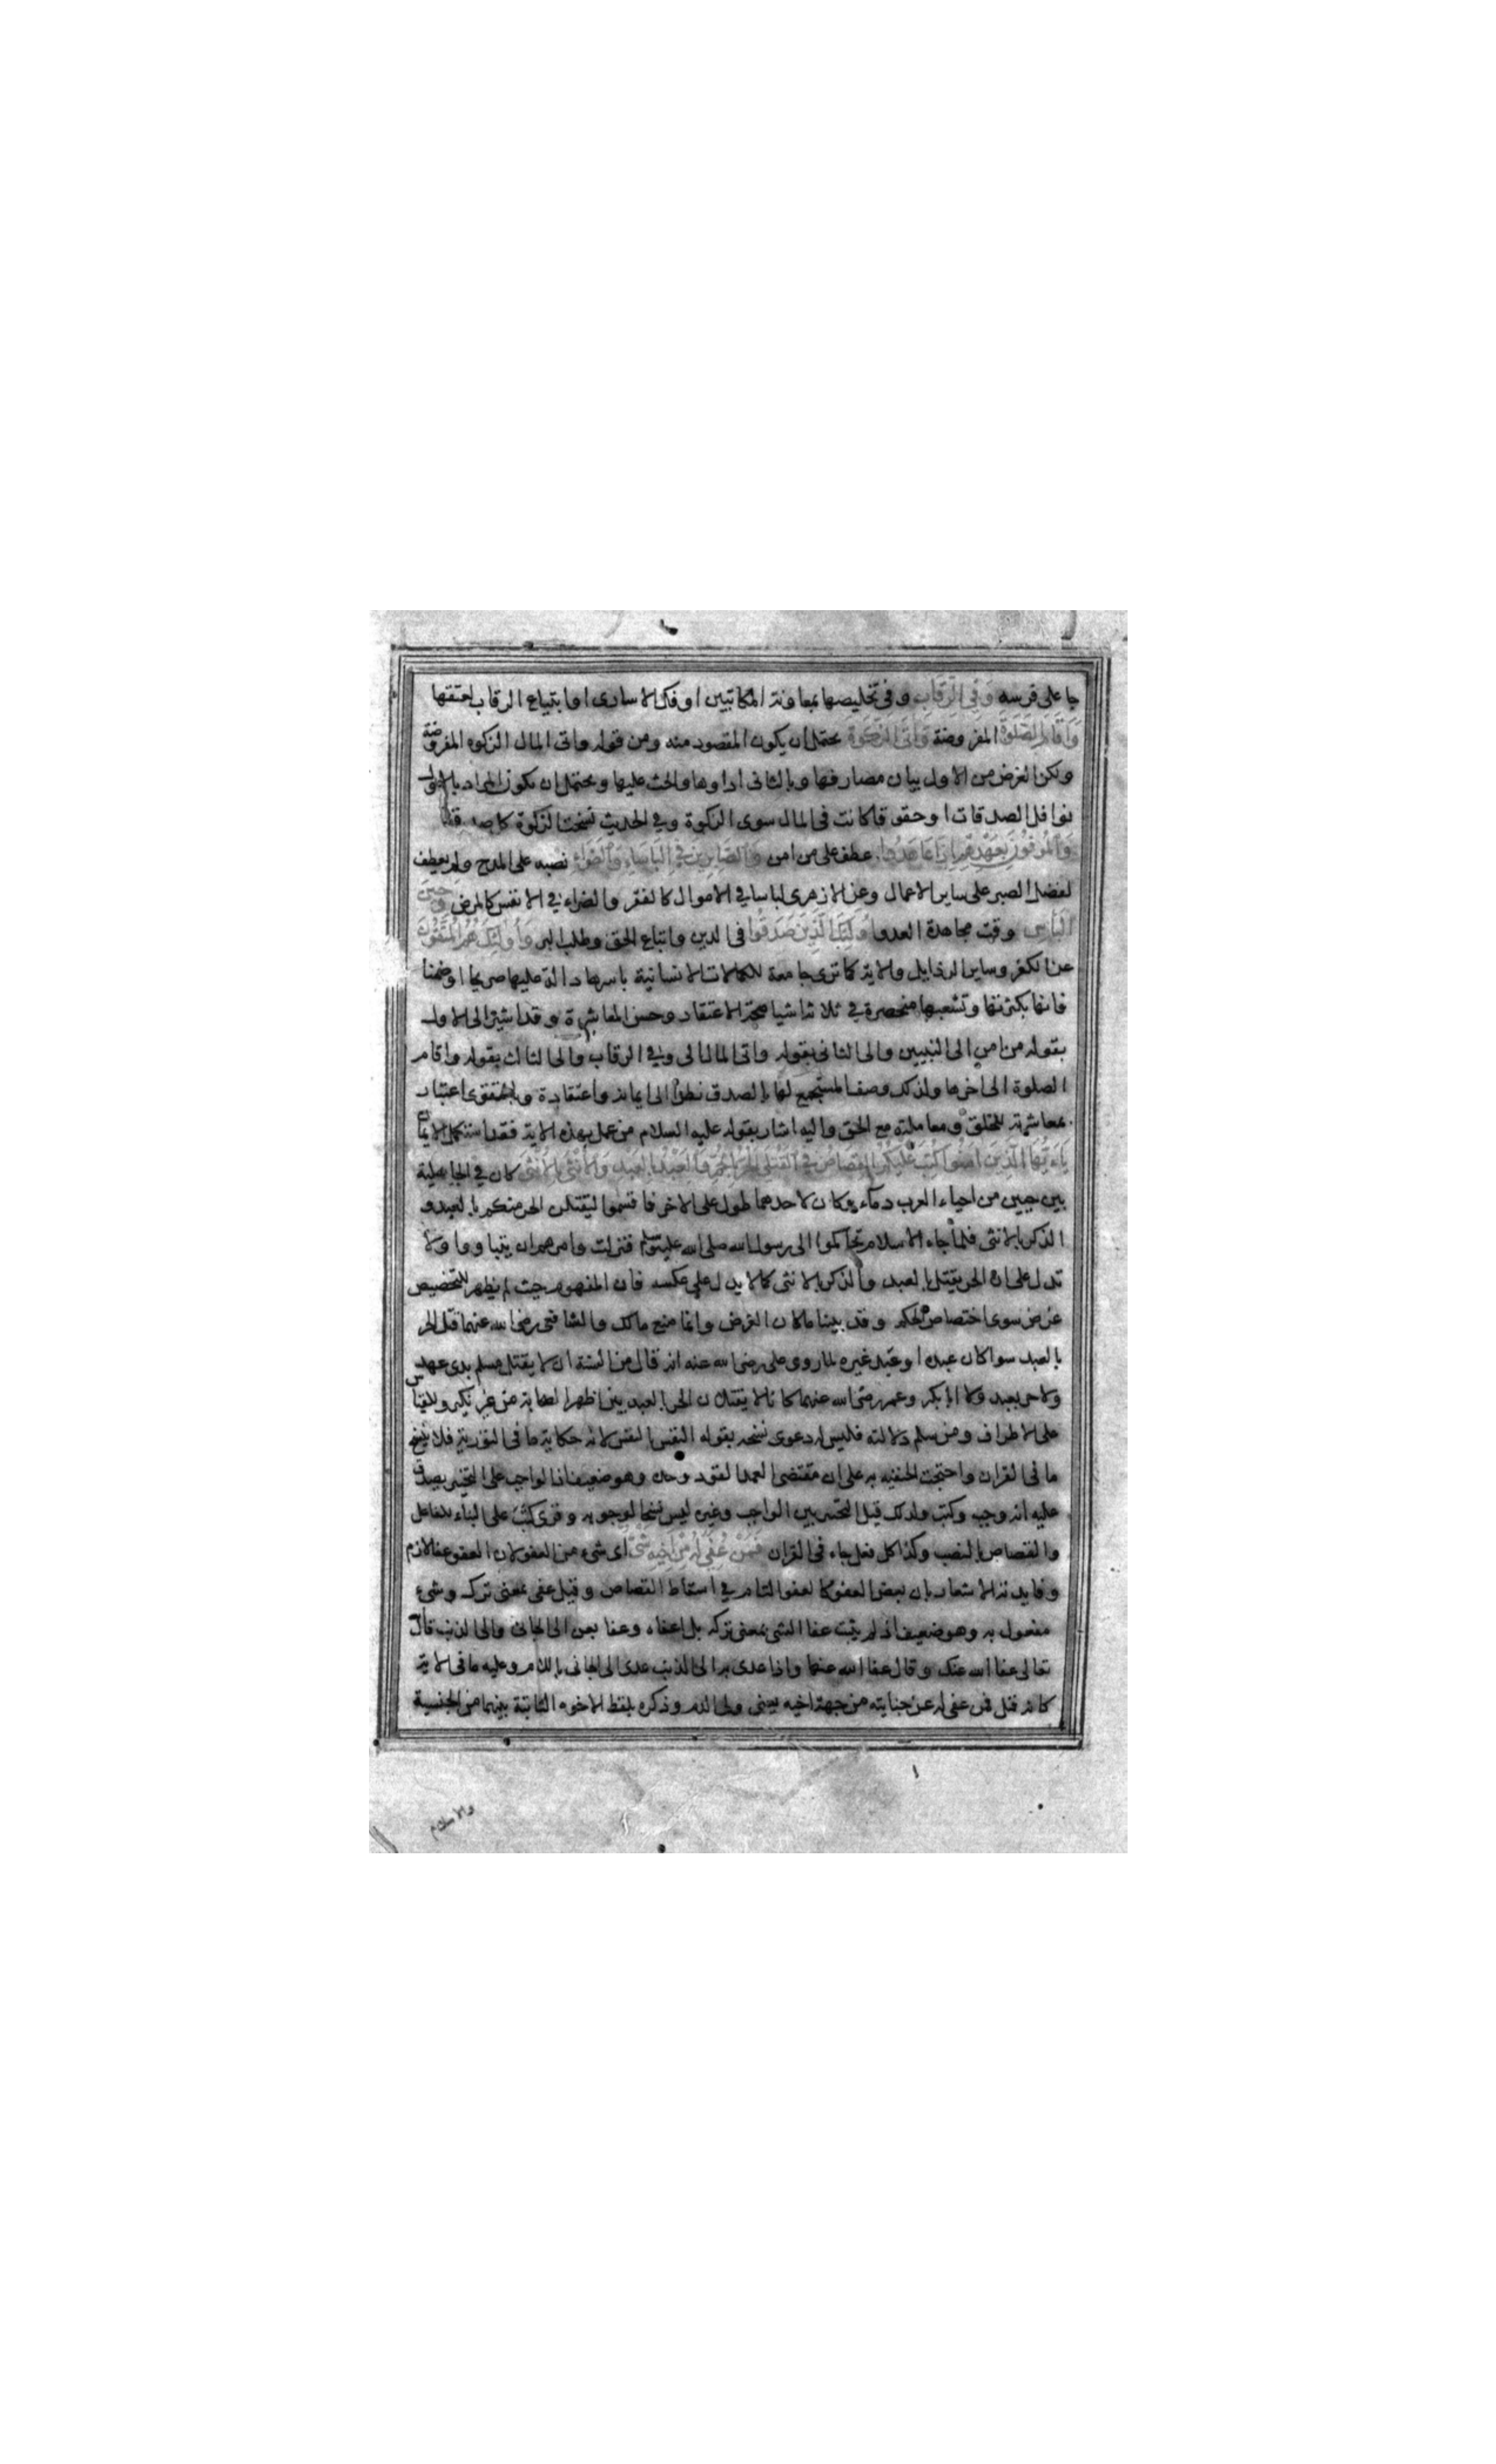 جا على فرسه وَفِي الرِّقَابِ وفى تخليصها بمعاونة المكاتبين او فك الاسارى او ابتياع الرقاب لعتقها
وَأَقَامَ الصَّلَوةَ المفروضة وَآتَى الزَّكَوةَ يحتمل ان يكون المقصود منه ومن قوله واتى المال الزكوه المفروضة
ولكن الغرض من الاول بيان مصارفها وبالثانى اداوها والحث عليها ويحتمل ان يكون المراد بالاول
نوافل الصدقات او حقوقا كانت فى المال سوى الزكوة وفي الحديث نسخت الزكوة كل صدقة
وَالْمُوفُونَ بِعَهْدِهِمْ إِذَا عَاهَدُوا عطف على من امن وَالصَّابِرِينَ فِي الْبَأْسَاءِ وَالضَّرَّاءِ نصبه على المدح ولم يعطف
لفضل الصبر على ساير الاعمال وعن الازهرى الباسا في الاموال كالفقر والضراء في الانفس كالمرض وَحِينَ
الْبَأْسِ وقت مجاهدة العدو أُولَئِكَ الَّذِينَ صَدَقُوا فى الدين واتباع الحق وطلب البر وَأُولَئِكَ هُمُ الْمُتَّقُونَ
عن الكفر وساير الرذايل والاية كما ترى جامعة للكمالات الانسانية باسرها دالة عليها صريحا او ضمنا
فانها بكثرتها وتشعبها منحصرة في ثلاثة اشيا صحة الاعتقاد وحسن المعاشرة وقد اشير الى الاول
بقوله من امن الى النبيين والى الثانى بقوله واتى المال الى وفي الرقاب والى الثالث بقوله واقام
الصلوة الى اخرها ولذلك وصف المستجمع لها بالصدق نظرا الى ايمانه واعتقاده وبالتقوى اعتبار
بمعاشرته للخلق ومعاملته مع الحق واليه اشار بقوله عليه السلام من عمل بهذه الاية فقد استكمل الايمان
يَاءَيُّهَا الَّذِينَ آمَنُوا كُتِبَ عَلَيْكُمُ الْقِصَاصُ فِي الْقَتْلَى الْحُرُّ بِالْحُرِّ وَالْعَبْدُ بِالْعَبْدِ وَالْأُنْثَى بِالْأُنْثَى كان في الجاهلية
بين حيين من احياء العرب دماء وكان لاحدهما طول على الاخر فاقسموا ليقتلن الحر منكم بالعبد و
الذكر بالانثى فلما جاء الاسلام تحاكموا الى رسول الله صلى الله عليه وسلم فنزلت وامرهم ان يتباووا ولا
تدل على ان الحر يقتل بالعبد والذكر بالانثى كما لا يدل على عكسه فان المفهوم حيث لم يظهر للتخصيص
غرض سوى اختصاص الحكم وقد بينا ما كان الغرض وانما منع مالك والشافعى رضى الله عنهما قتل الحر
بالعبد سوا كان عبده او عبد غيره لما روى على رضى الله عنه انه قال من السنة ان لا يقتل مسلم بذى عهد
ولا حر بعبد ولان ابا بكر وعمر رضى الله عنهما كانا لا يقتلان الحر بالعبد بين اظهر الصحابة من غير نكير وللقياس
على الاطراف ومن سلم دلالته فليس له دعوى نسخه بقوله النفس بالنفس لانه حكاية ما فى التورية فلا ينسخ
ما فى القران واحتجت الحنفيه به على ان مقتضى العمد القود وحده وهو ضعيف اذ الواجب على التخيير يصدق
عليه انه وجب وكتب ولذلك قيل التخيير بين الواجب وغيره ليس نسخا لوجوبه وقرى كَتَبَ على البناء للفاعل
والقصاص بالنصب وكذا كل فعل جاء فى القران فَمَنْ عُفِيَ لَهُ مِنْ أَخِيهِ شَيْءٌ اى شىء من العفو لان العفو عفا لازم
وفايدته الاشعار بان بعض العفو كالعفو التام في اسقاط القصاص وقيل عفى بمعنى ترك وشىء
مفعول به وهو ضعيف اذ لم يثبت عفا الشى بمعنى تركه بل اعفاه وعفا بعن الى الجانى والى الذنب قال
تعالى عفا الله عنك وقال عفا الله عنها واذا عدى به الى الذنب عدى الى الجانى باللام وعليه ما فى الاية
كانه قيل فمن عفى له عن جنايته من جهة اخيه يعنى ولى الدم وذكره بلفظ الاخوه الثابتة بينهما من الجنسية
والاسلام